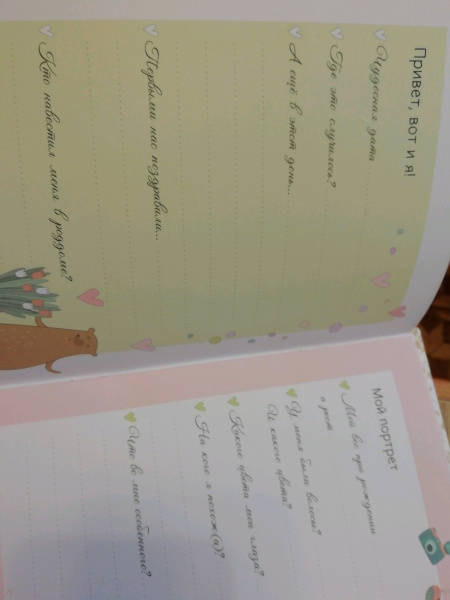 Привет, вот и я!
Чудесная дата
Где это случилось?
А ещё в этот день...
Первыми нас поздравили...
Кто навестил меня в роддоме?
Мой портрет
Мой вес при рождении
и рост
У меня были волосы?
И какого цвета?
Какого цвета мои глаза?
На кого я похож(а)?
Что во мне особенного?